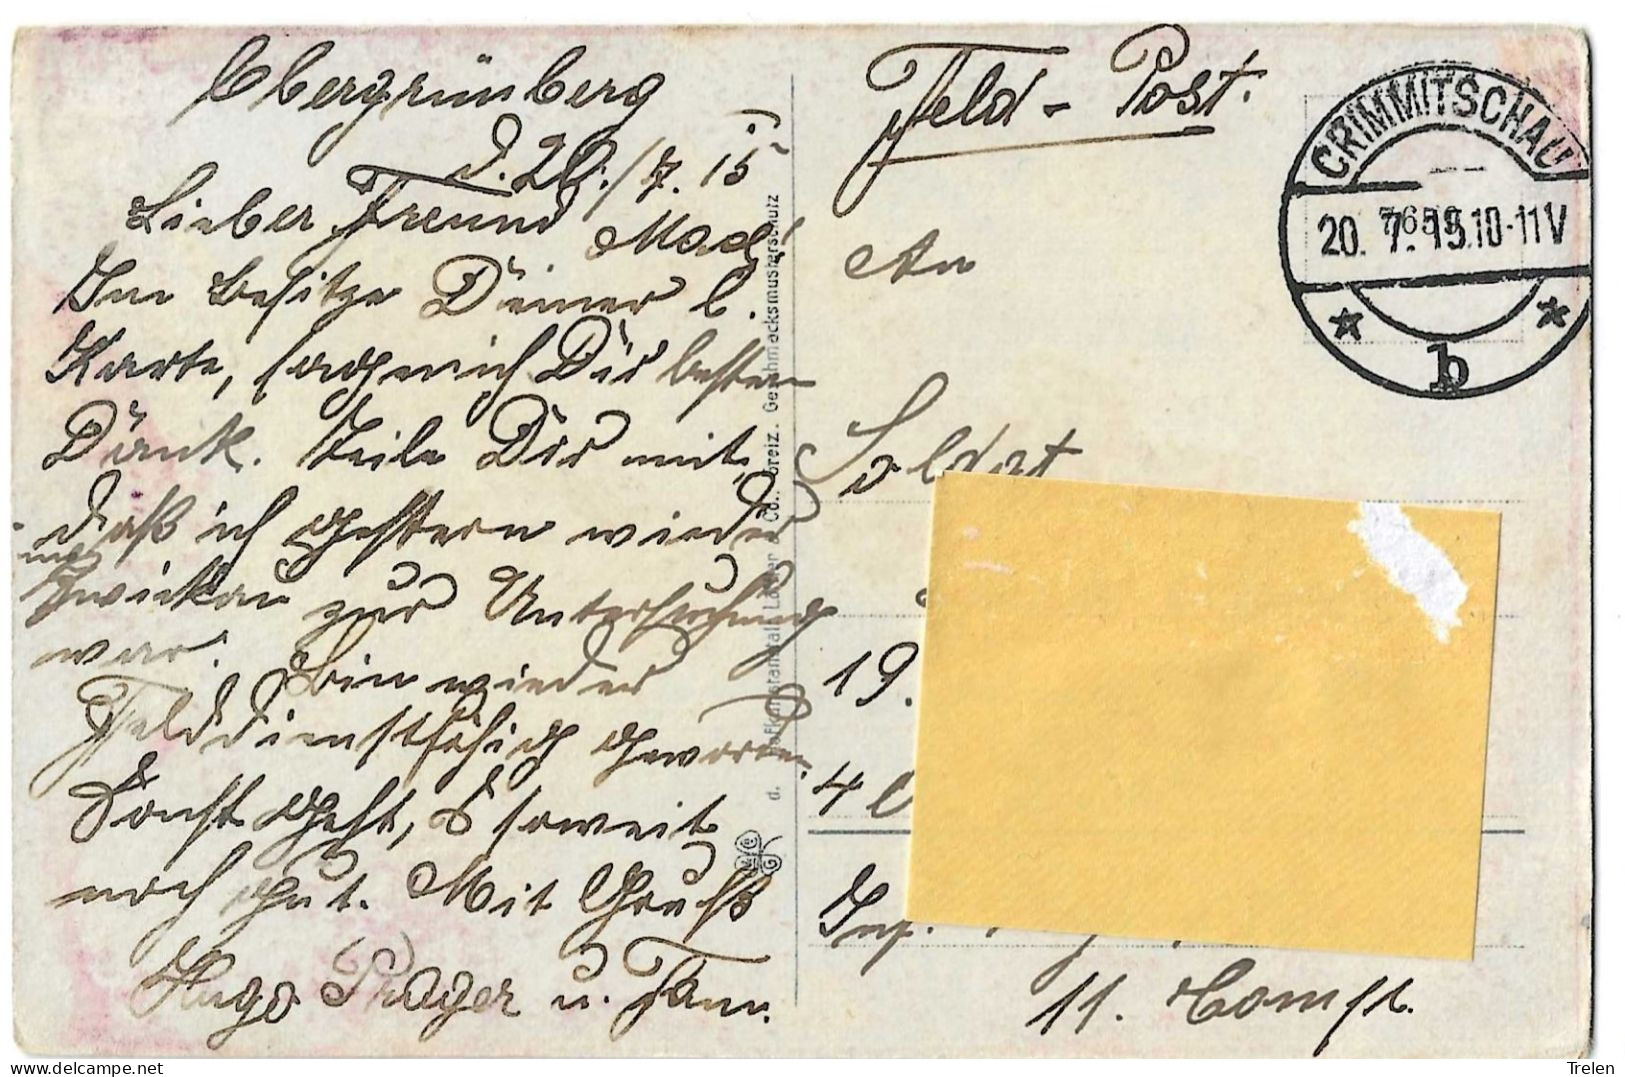 Obergrünberg
d. 20./7. 15
Lieber Freund Max!
Im Besitze Deiner l.
Karte, sage ich Dir besten
Dank. Teile Dir mit,
daß ich gestern wieder
in
Zwickau zur Untersuchung
war. Bin wieder
Felddienstfähig geworden.
Sonst geht's soweit
noch gut. Mit Gruß
Hugo Prager u. Fam.
Feld-Post.
An
Soldat
19.
4
Inf.
11. Comp.
CRIMMITSCHAU
20. 7. 15. 10-11 V
* b *
Geschmacksmusterschutz
Trelen